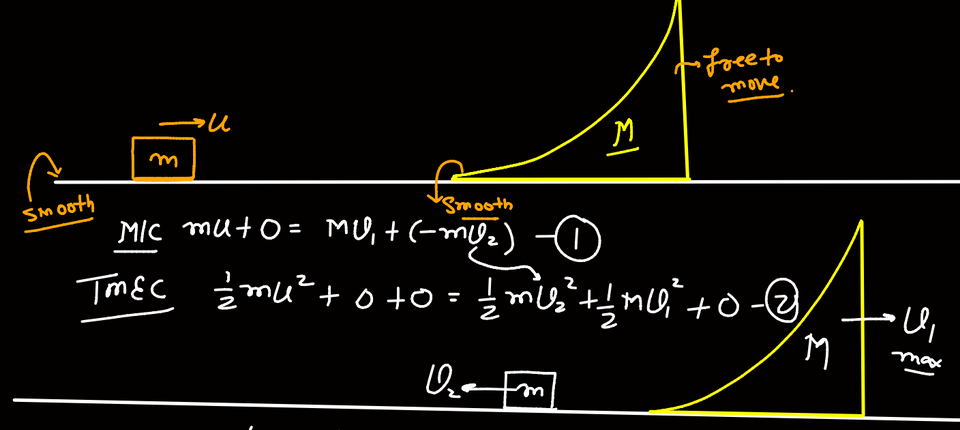 free to
move.
M
u
m
smooth
smooth
M/C mu + 0 = Mv₁ + (-mv₂) - ①
TMEC ½mu² + 0 + 0 = ½mv₂² + ½Mv₁² + 0 - ②
M
v₁
max
v₂
m